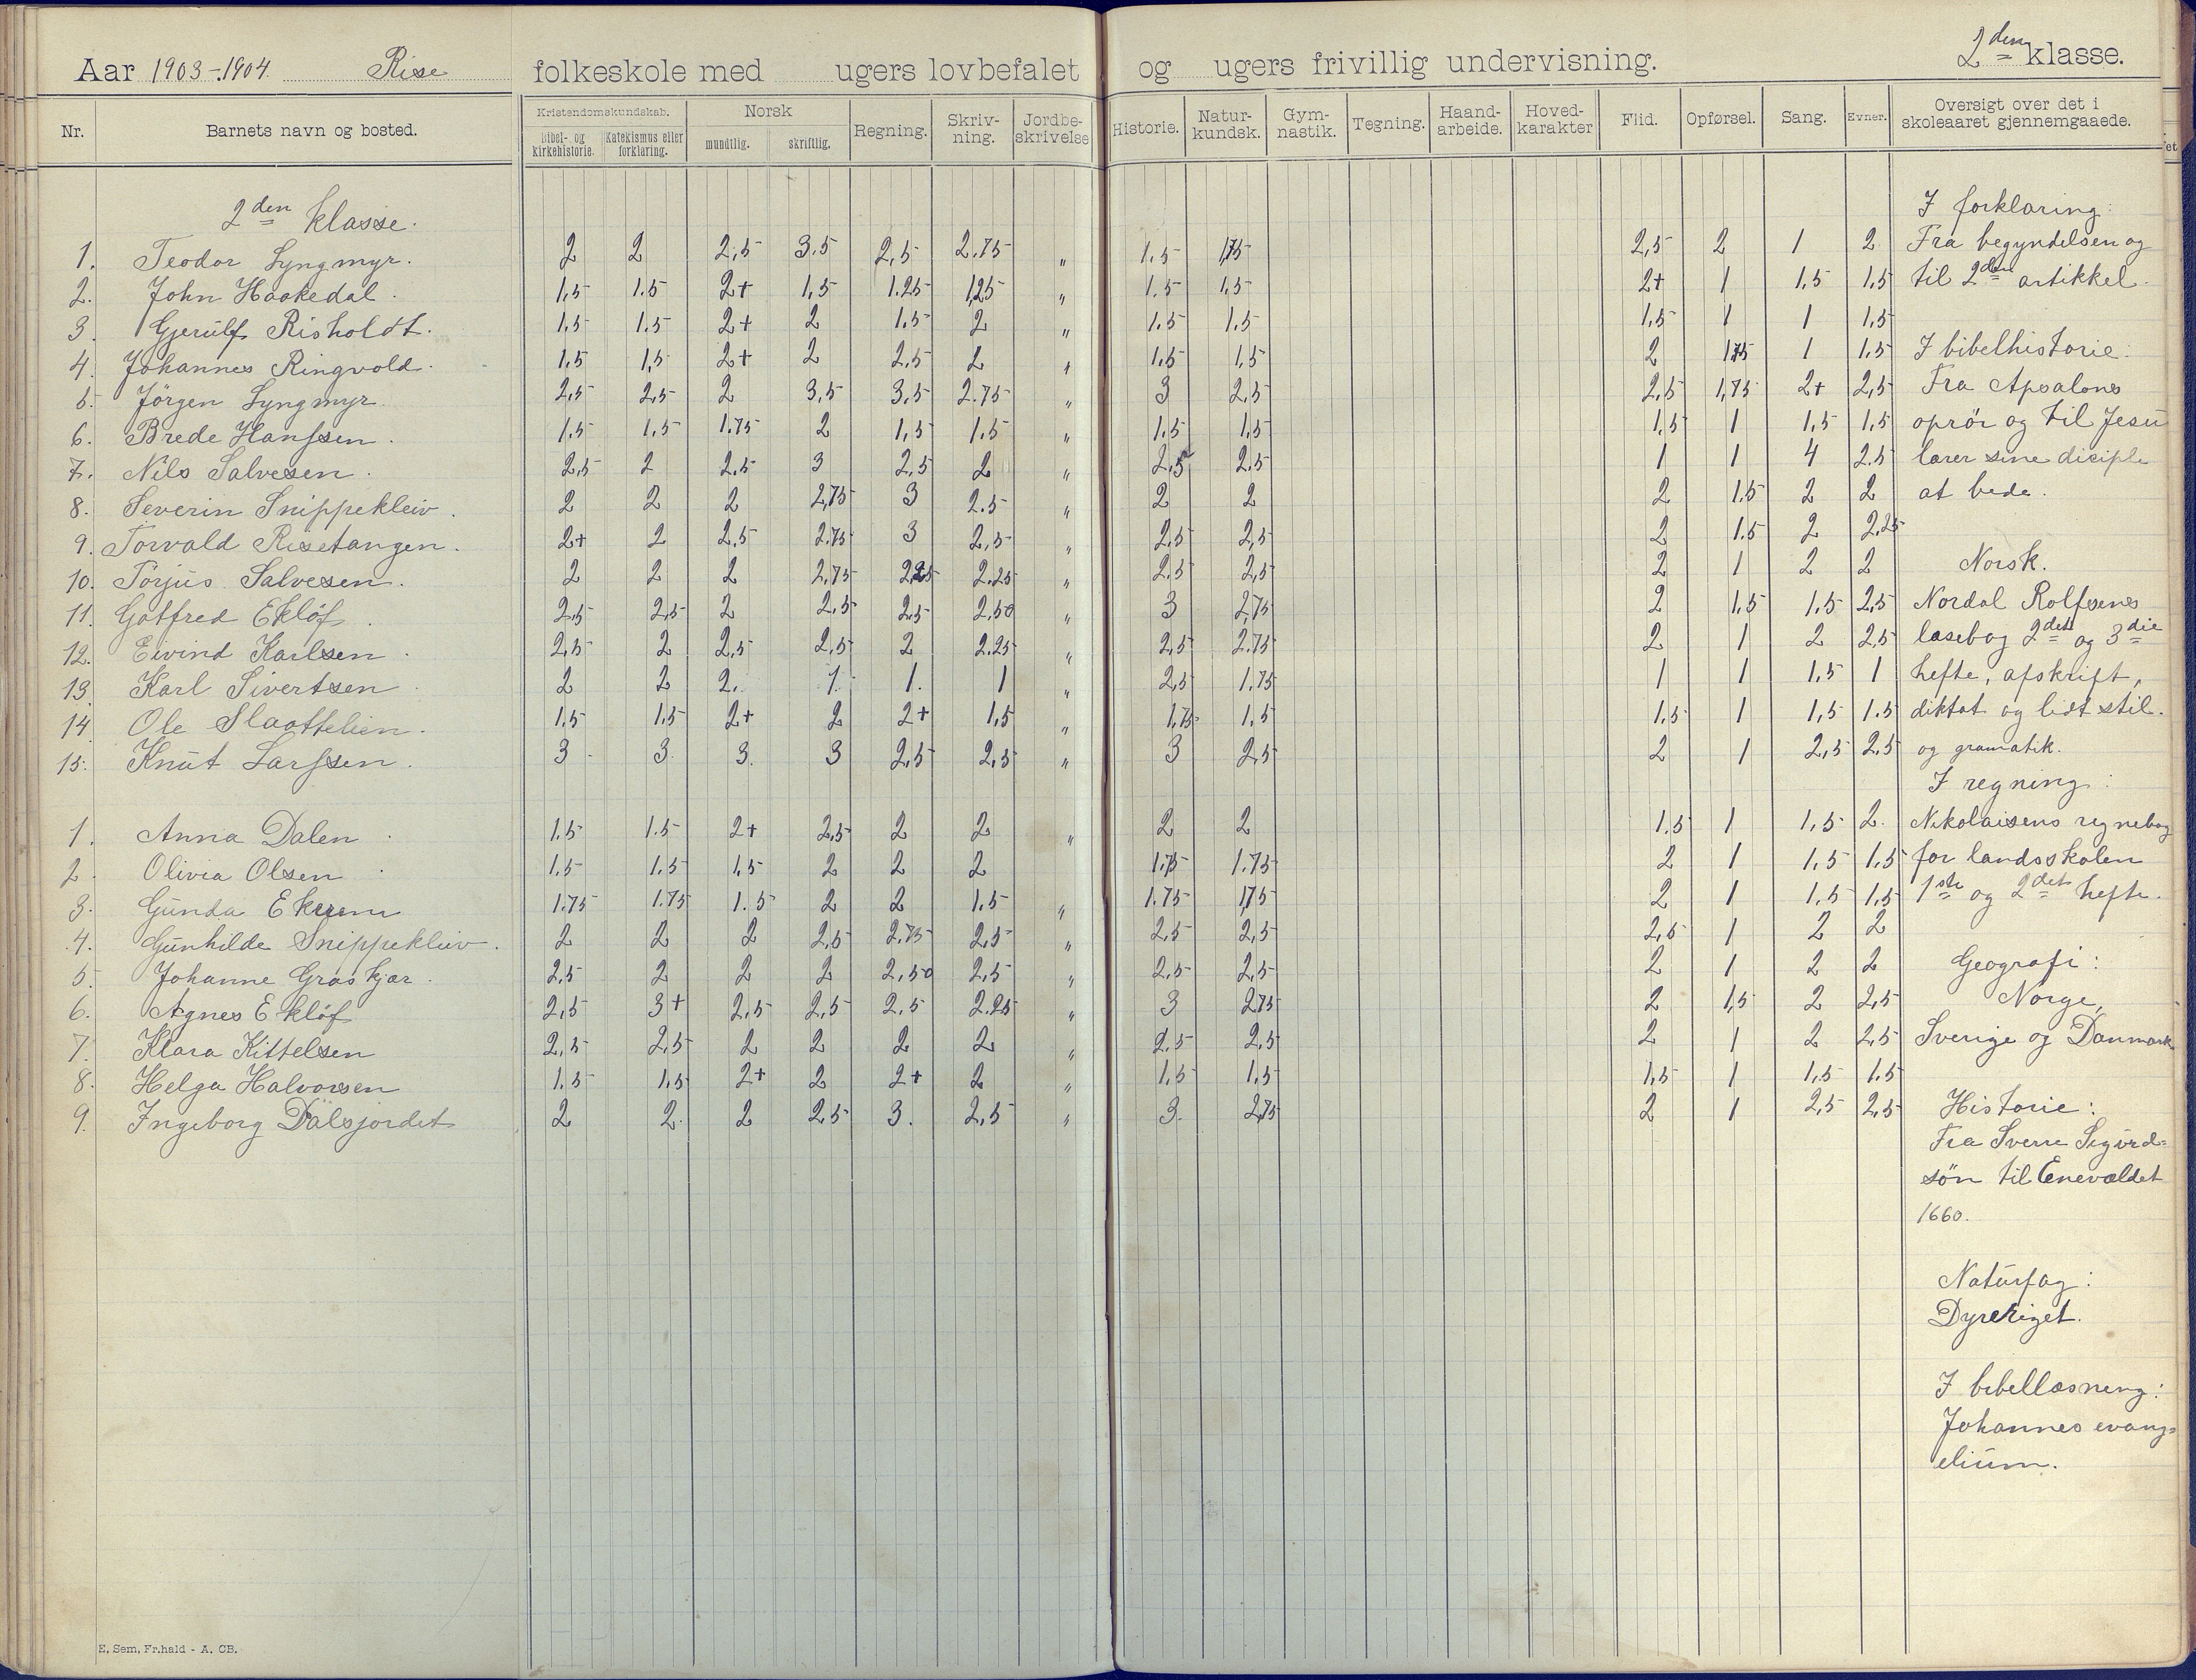 Aar 1903-1904. Rise folkeskole med ugers lovbefalet og ugers frivillig undervisning. 2den klasse.
Nr. Barnets navn og bosted. Kristendomskundskab. Norsk Regning. Skriv-ning. Jordbe-skrivelse Historie. Natur-kundsk. Gym-nastik. Tegning. Haand-arbeide. Hoved-karakter Flid. Opførsel. Sang. Evner. Oversigt over det i skoleaaret gjennemgaaede.
Bibel- og kirkehistorie. Katekismus eller forklaring. mundtlig. skriftlig.
2den klasse. I forklaring:
1. Teodor Lyngmyr. 2 2 2,5 3.5 2,5 2.75 " 1.5 1,75 2,5 2 1 2 Fra begyndelsen og
2. John Haakedal. 1,5 1.5 2+ 1,5 1.25 1,25 " 1.5 1,5 2+ 1 1,5 1,5 til 2den artikkel.
3. Gjerulf Risholdt. 1.5 1.5 2+ 2 1.5 2 " 1.5 1.5 1.5 1 1 1.5
4. Johannes Ringvold. 1,5 1,5 2+ 2 2.5 2 " 1.5 1,5 2 1.75 1 1.5 I bibelhistorie:
5. Jörgen Lyngmyr. 2,5 2,5 2 3,5 3,5 2.75 " 3 2,5 2,5 1,75 2+ 2,5 Fra Apsalons
6. Brede Hanssen. 1.5 1,5 1.75 2 1,5 1.5 " 1.5 1,5 1,5 1 1,5 1,5 oprör og til Jesu
7. Nils Salvesen. 2,5 2 2.5 3 2,5 2 " 2,5 2.5 1 1 4 2.5 lærer sine disciple
8. Severin Snippekleiv. 2 2 2 2,75 3 2.5 " 2 2 2 1.5 2 2 at bede.
9. Torvald Risetangen. 2+ 2 2.5 2.75 3 2,5 " 2.5 2,5 2 1.5 2 2,25
10. Torjus Salvesen. 2 2 2 2,75 2,25 2.25 " 2.5 2,5 2 1 2 2 Norsk.
11. Gotfred Eklöf. 2,5 2,5 2 2,5 2,5 2,50 " 3 2,75 2 1,5 1,5 2,5 Nordal Rolfsens
12. Eivind Karlsen. 2,5 2 2,5 2,5 2 2.25 " 2,5 2.75 2 1 2 2,5 læsebog 2det og 3die
13. Karl Sivertsen. 2 2 2. 1. 1. 1 " 2,5 1.75 1 1 1,5 1 hefte, afskrift,
14. Ole Slaattelien. 1.5 1.5 2+ 2 2+ 1,5 " 1,75 1,5 1,5 1 1,5 1.5 diktat og lidt stil.
15. Knut Larssen. 3 3. 3. 3 2,5 2,5 " 3 2,5 2 1 2,5 2,5 og gramatik.
I regning:
1. Anna Dalen. 1.5 1.5 2+ 2,5 2 2 " 2 2 1.5 1 1,5 2. Nikolaisens regnebog
2. Olivia Olsen. 1.5 1.5 1,5 2 2 2 1.75 1.75 2 1 1,5 1,5 for landsskolen
3. Gunda Ekrem 1.75 1.75 1.5 2 2 1.5 " 1.75 1,75 2 1 1,5 1,5 1ste og 2det hefte.
4. Gunhilde Snippekleiv. 2 2 2 2,5 2.75 2,5 " 2.5 2,5 2,5 1 2 2
5. Johanne Græskjær. 2,5 2 2 2 2,50 2,5 " 2,5 2,5 2 1 2 2 Geografi:
6. Agnes Eklöf 2,5 3+ 2,5 2,5 2,5 2.25 " 3 2.75 2 1,5 2 2,5 Norge,
7. Klara Kittelsen 2,5 2,5 2 2 2 2 " 2.5 2,5 2 1 2 2,5 Sverige og Danmark
8. Helga Halvorsen 1.5 1,5 2+ 2 2+ 2 " 1,5 1.5 1,5 1 1,5 1.5
9. Ingeborg Dalsjordet 2 2. 2 2,5 3. 2,5 " 3. 2,75 2 1 2,5 2,5 Historie:
Fra Sverre Sigurd=
sön til Enevældet
1660.
Naturfag:
Dyreriget.
I bibellæsning:
Johannes evang=
elium.
E. Sem, Fr.hald - A. CB.